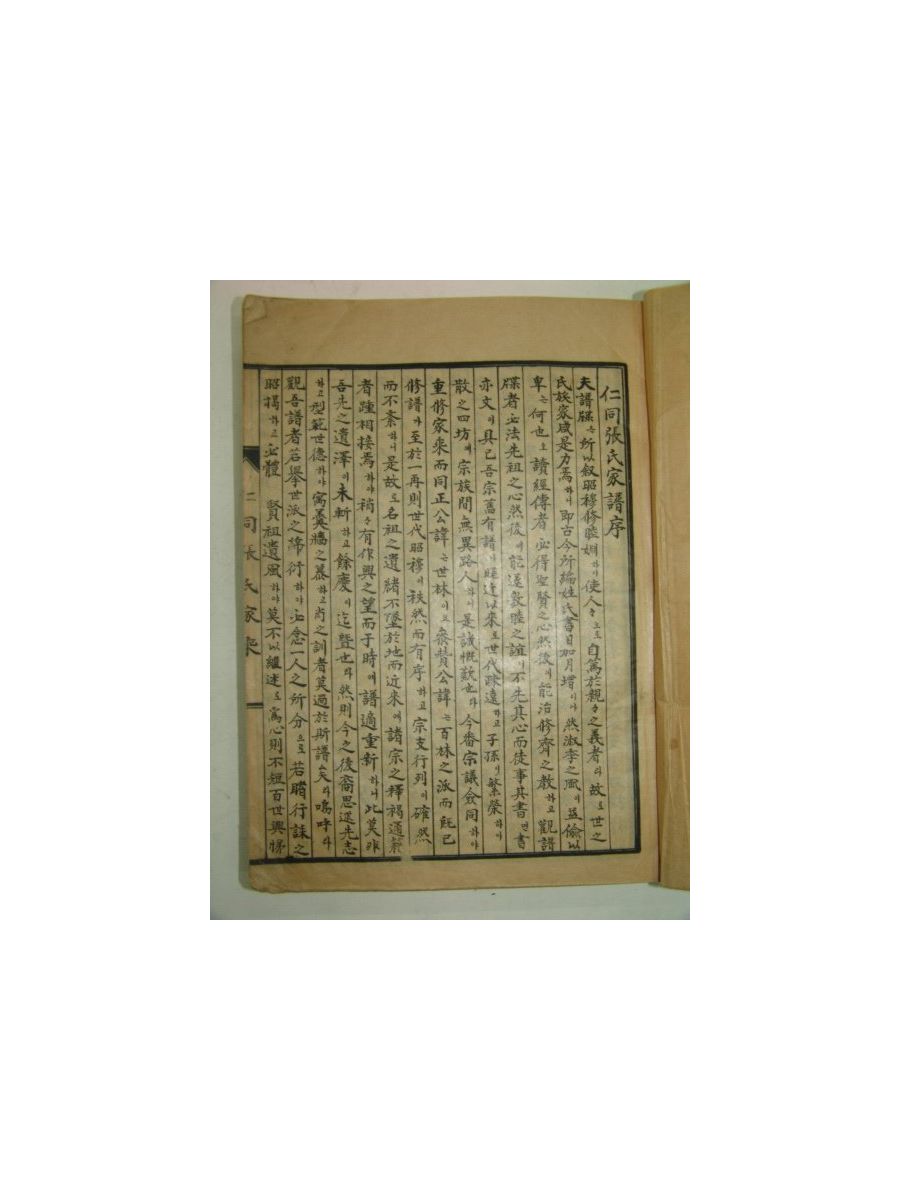 仁同張氏家譜序
夫譜牒는所以叙昭穆修睦婣하야使人人으로自篤於親親之義者라故로世之
氏族家咸是力焉하니即古今所編姓氏書日加月增이야然淑季之風이益偸以
卑는何也오讀經傳者必得聖賢之心然後에能治修齊之教하고觀譜
牒者必法先祖之心然後에能遂敦睦之誼이不先其心而徒事其書면書
亦文이具已吾宗舊有譜以來로世代疎遠하고子孫이繁榮하야
散之四坊에宗族間無異路人하니是誠慨歎也라今番宗議僉同하야
重修家乘而同正公諱는世林이오參贊公諱는百林之派而旣已
修譜가至於一再則世代昭穆이秩然而有序하고宗支行列이確然
而不紊하니是故로名祖之遺緖不墜於地而近來에諸宗之釋褐通
者踵相接焉하야稍稍有作興之望而于時에譜適重新하니此莫非
吾先之遺澤이未斬하고餘慶이迄暨也라然則今之後裔思述先志
하고型範世德하야寓羹牆之慕하고尚之訓者莫過於斯譜矣라嗚呼라
觀吾譜者若擧世派之綿衍하야必念一人之所分으로若睹行誄之
昭揭하고必體 賢祖遺風하야莫不以繼述로爲心則不短百世興悌
仁同張氏家乘